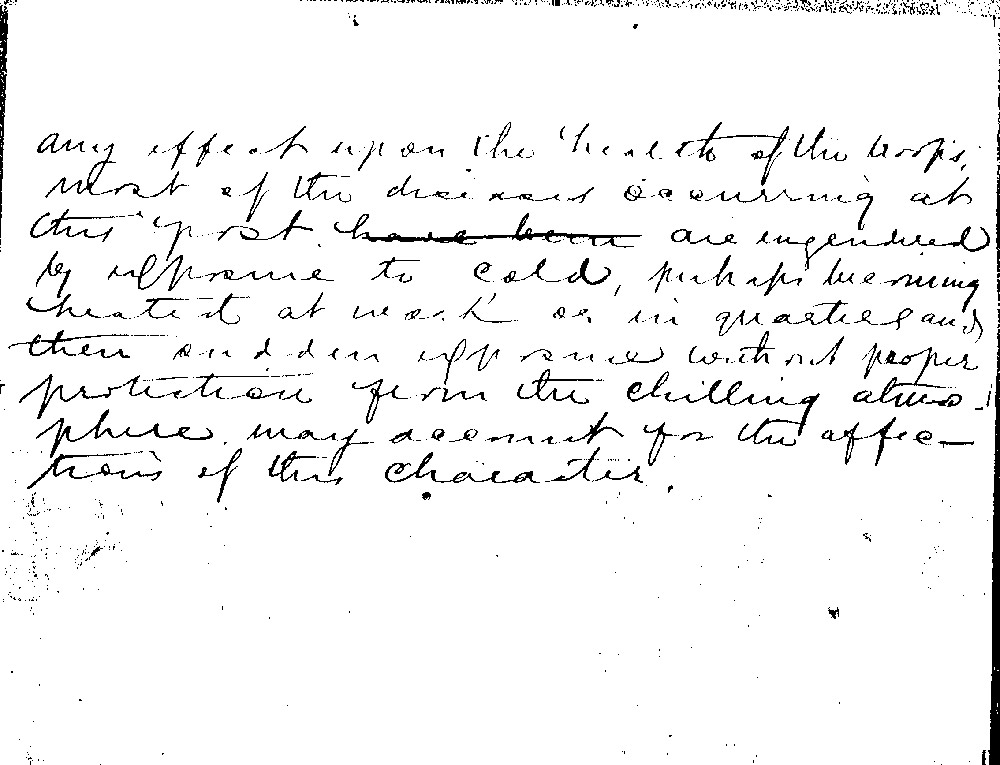 any effect upon the health of the troops,
most of the diseases occurring at
this post have been are engendered
by exposure to cold, perhaps becoming
heated at work or in quarters and
then sudden exposure without proper
protection from the chilling atmos-
phere may account for the affec-
tions of this character.